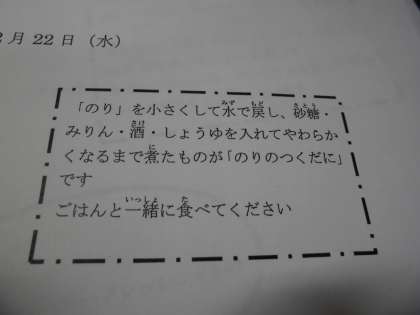 2月22日（水）
「のり」を小さくして水で戻し、砂糖・
みりん・酒・しょうゆを入れてやわらか
くなるまで煮たものが「のりのつくだに」
です
ごはんと一緒に食べてください